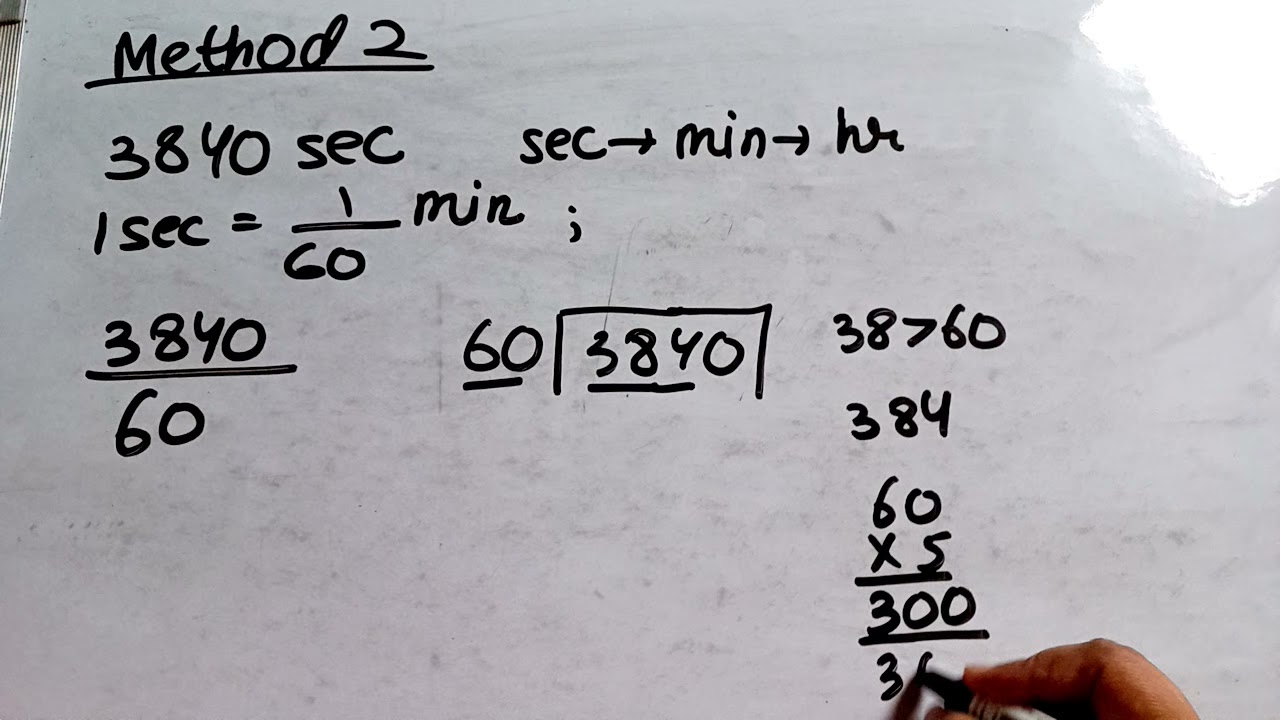 Method 2
3840 sec sec→min→hr
1 sec = 1/60 min ;
3840/60
60 3840
38>60
384
60
x 5
300
3